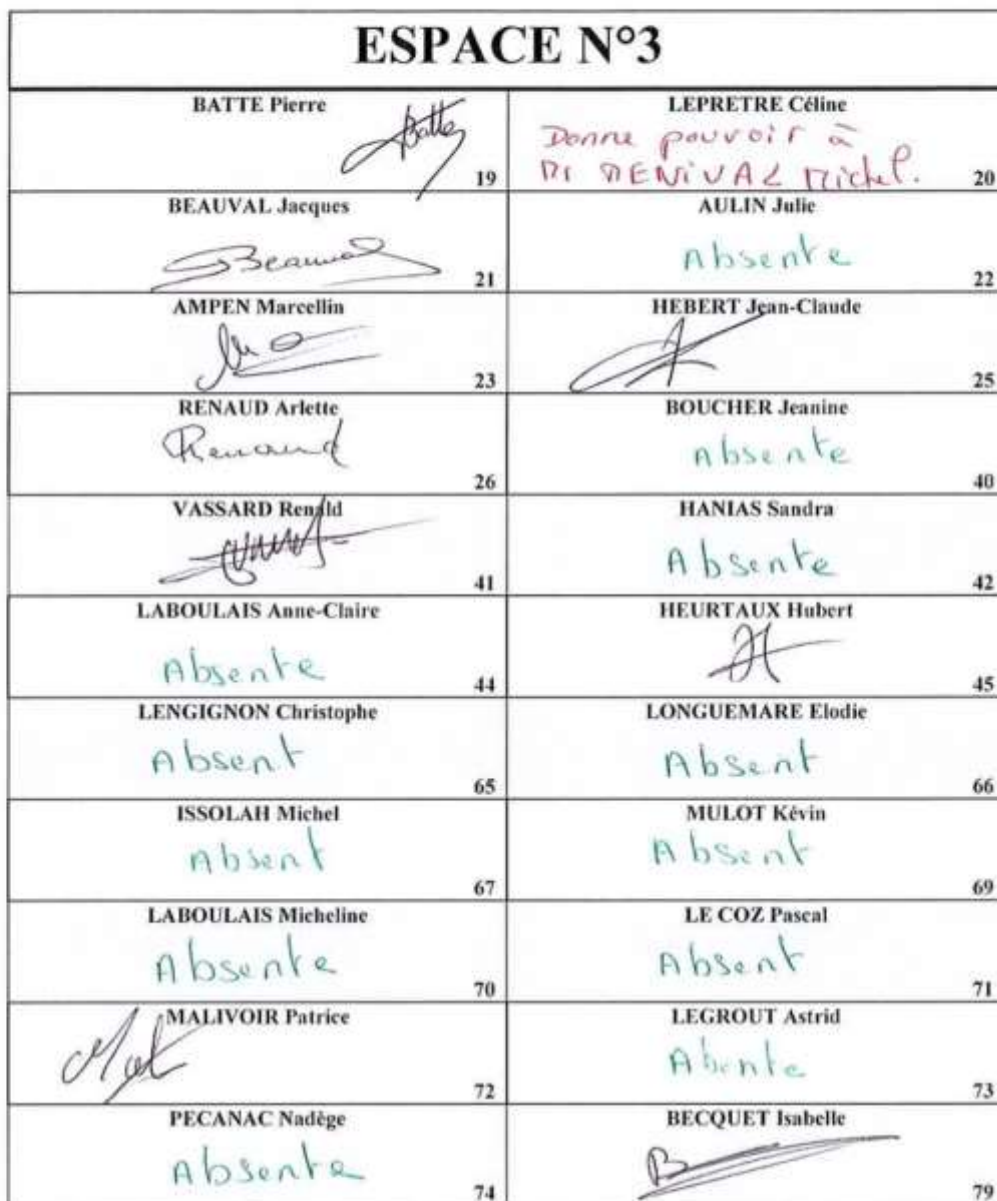 ESPACE N°3
BATTE Pierre
Batte
19
LEPRETRE Céline
Donne pouvoir à
Mr MENIVAL Michel.
20
BEAUVAL Jacques
Beauval
21
AULIN Julie
Absente
22
AMPEN Marcellin
23
HEBERT Jean-Claude
25
RENAUD Arlette
Renaud
26
BOUCHER Jeanine
Absente
40
VASSARD Renald
41
HANIAS Sandra
Absente
42
LABOULAIS Anne-Claire
Absente
44
HEURTAUX Hubert
45
LENGIGNON Christophe
Absent
65
LONGUEMARE Elodie
Absent
66
ISSOLAH Michel
Absent
67
MULOT Kévin
Absent
69
LABOULAIS Micheline
Absente
70
LE COZ Pascal
Absent
71
MALIVOIR Patrice
72
LEGROUT Astrid
Absente
73
PECANAC Nadège
Absente
74
BECQUET Isabelle
79